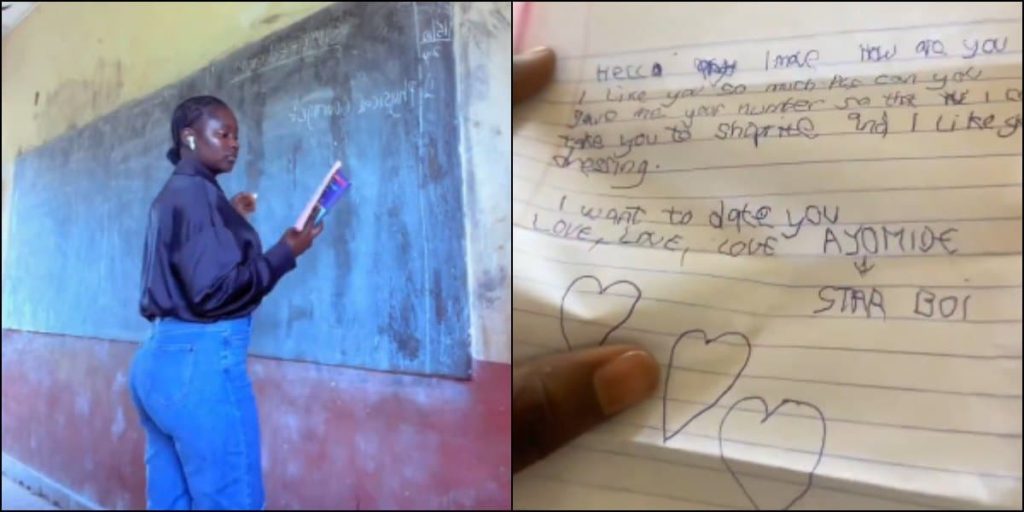 Physical
Hello How are you
I Like you so much can you
gave me your number so I
take you to shoprite and I Like
dressing.
I want to date you
LOVE, LOVE, LOVE AYOMIDE
STAR BOI